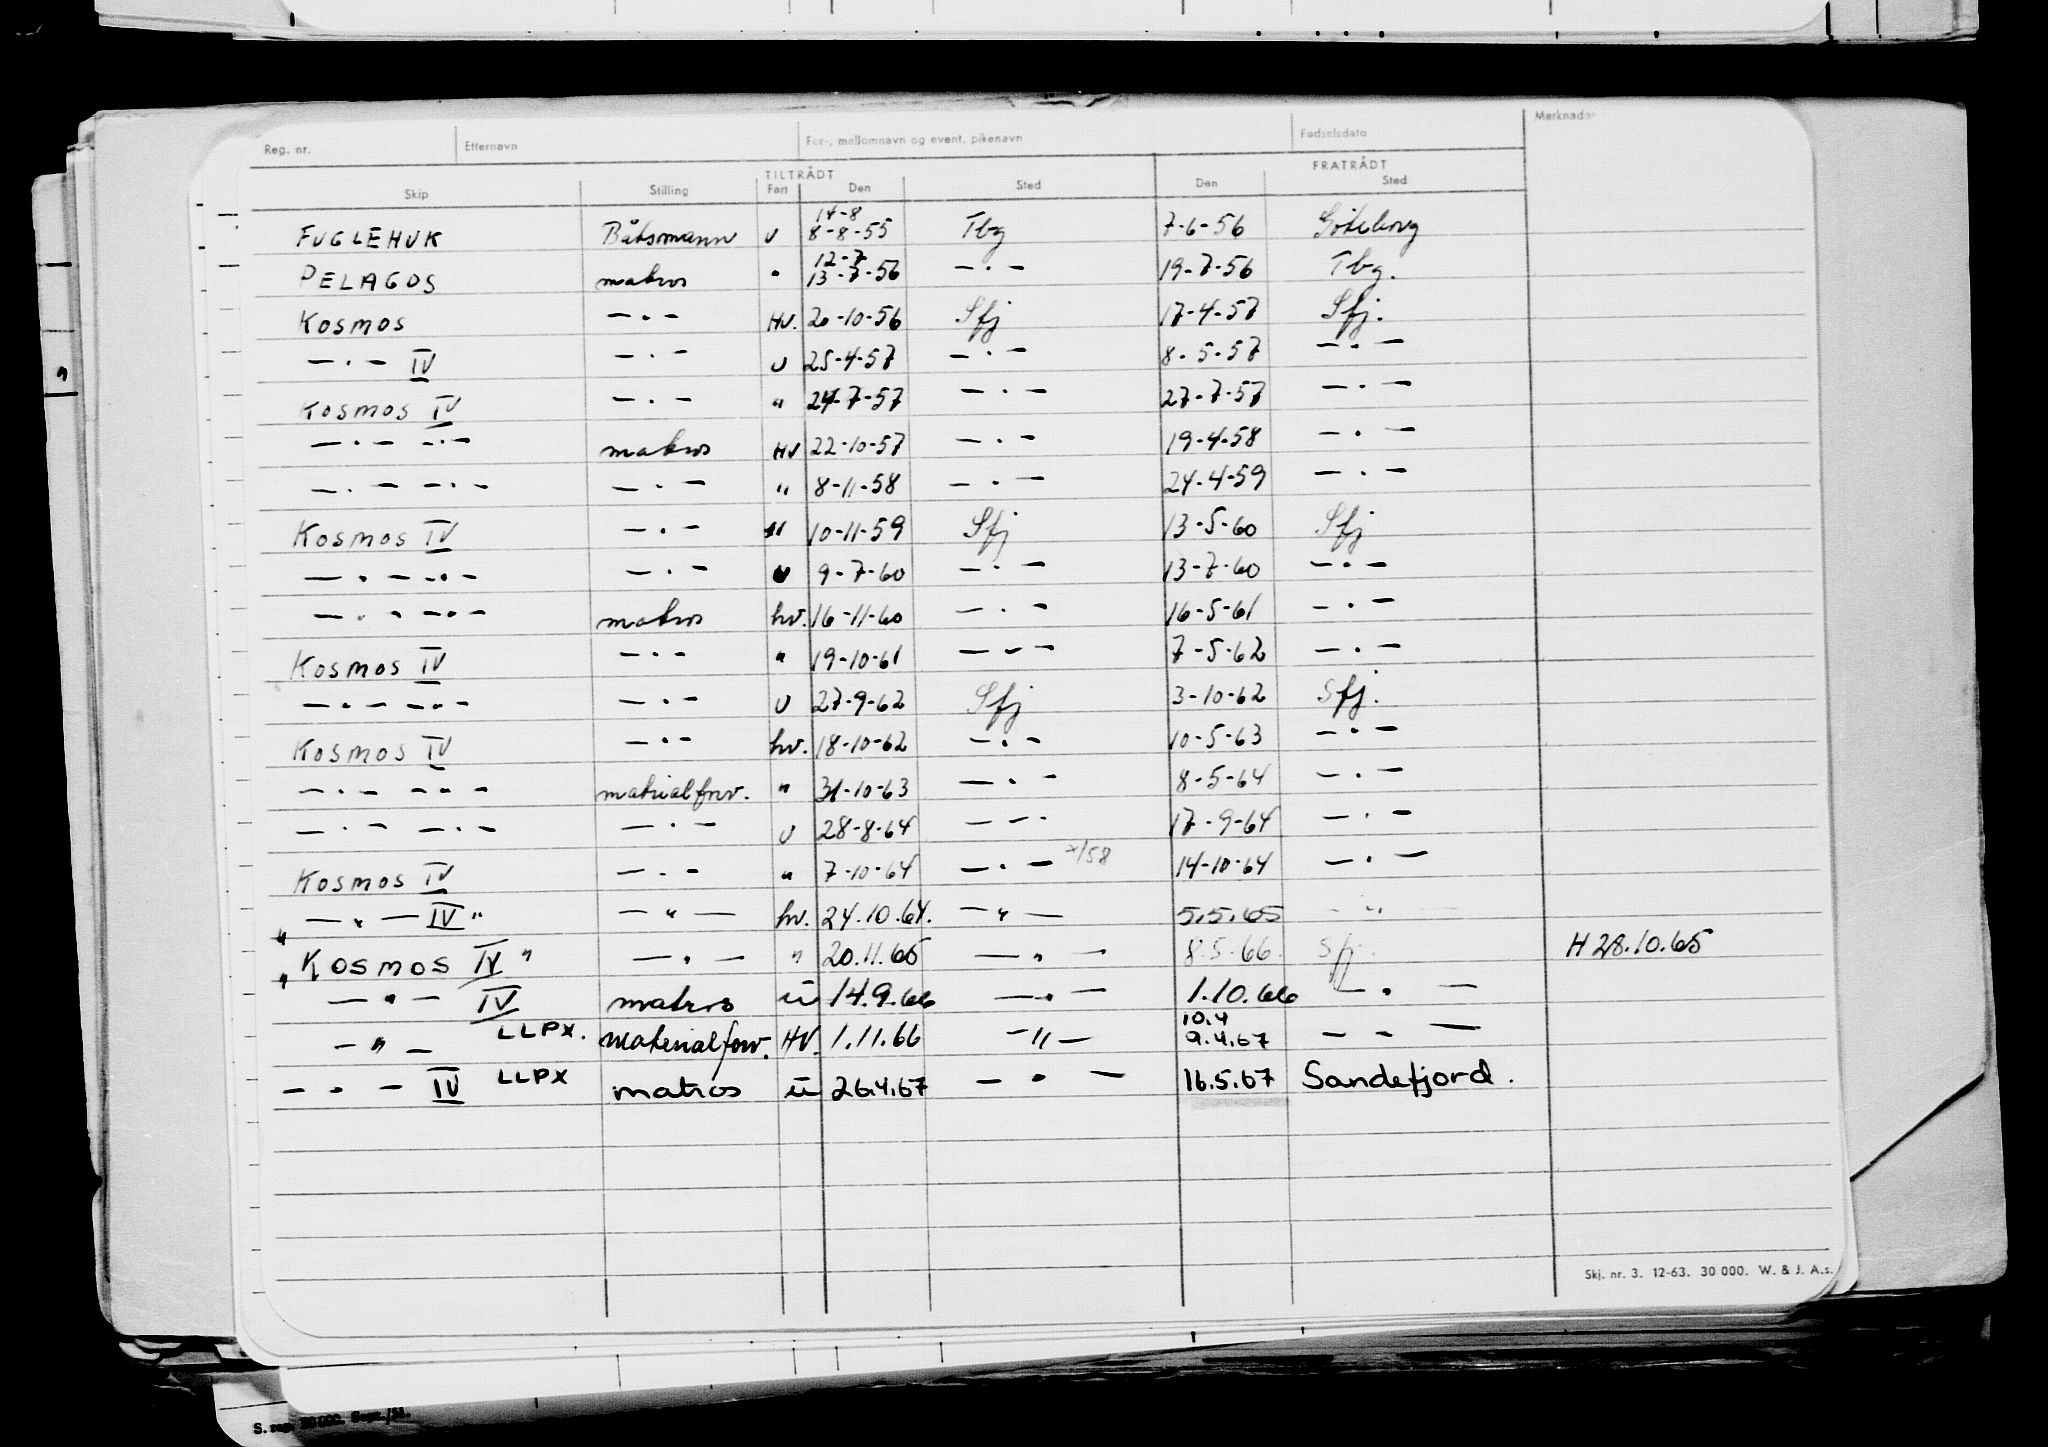 Reg. nr. Etternavn For-, mellomnavn og event. pikenavn Fødselsdato Merknader
TILTRÅDT FRATRÅDT
Skip Stilling Fart Den Sted Den Sted
14-8
FUGLEHUK Båtsmann U 8-8-55 Tbg 7-6-56 Göteborg
12-7
PELAGOS matros " 13-7-56 — · — 19-7-56 Tbg.
KOSMOS — · — HV. 20-10-56 Sfj 17-4-57 Sfj.
— · — IV — · — U 25-4-57 — · — 8-5-57 — · —
KOSMOS IV — · — " 24-7-57 — · — 27-7-57 — · —
— · — — · — matros HV 22-10-57 — · — 19-4-58 — · —
— · — — · — — · — " 8-11-58 — · — 24-4-59 — · —
KOSMOS IV — · — " 10-11-59 Sfj 13-5-60 Sfj
— · — — · — — · — U 9-7-60 — · — 13-7-60 — · —
— · — — · — matros hv. 16-11-60 — · — 16-5-61 — · —
KOSMOS IV — · — " 19-10-61 — · — 7-5-62 — · —
— · — — · — — · — U 27-9-62 Sfj 3-10-62 Sfj.
KOSMOS IV — · — hv. 18-10-62 — · — 10-5-63 — · —
— · — — · — matrialforv. " 31-10-63 — · — 8-5-64 — · —
— · — — · — — · — U 28-8-64 — · — 17-9-64 — · —
KOSMOS IV — · — " 7-10-64 — · — x/58 14-10-64 — · —
" — " — IV " — " — hv. 24.10.64. — " — 5.5.65 — " —
" KOSMOS IV " — " — " 20.11.65 — " — 8.5.66. Sfj. H 28.10.65
— " — IV matros u 14.9.66 — " — 1.10.66 — " —
10.4
— " — LLPX. materialforv. HV. 1.11.66 — " — 9.4.67 — " —
— " — IV LLPX matros u 26.4.67 — " — 16.5.67 Sandefjord.
Skj. nr. 3. 12-63. 30 000. W. & J. A.s.